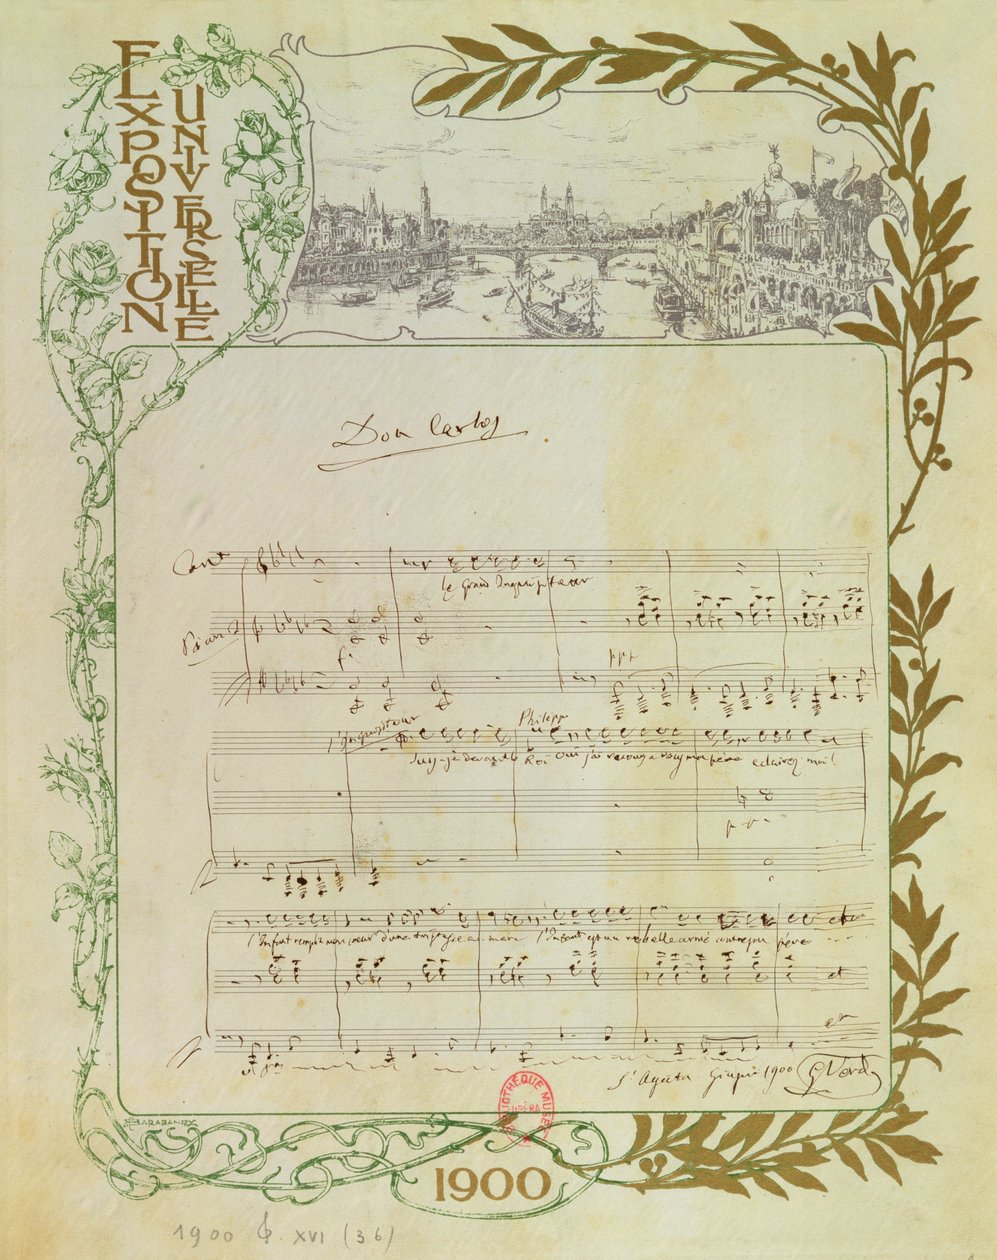 EXPOSITION
UNIVERSELLE
Don Carlos
Cant
le Grand Inquisiteur
Piano
ff
ppp
l'Inquisiteur
Philippe
Suis-je devant le Roi Oui j'ai recours a vous mon père eclairez moi!
l'Infant remplit mon cœur d'une tristesse amère l'Infant est un rebelle armé contre son père
etc
S' Agata Giugno 1900 G Verdi
BIBLIOTHEQUE MUSEE
OPERA
BARABANDY
1900
1900 XVI (36)